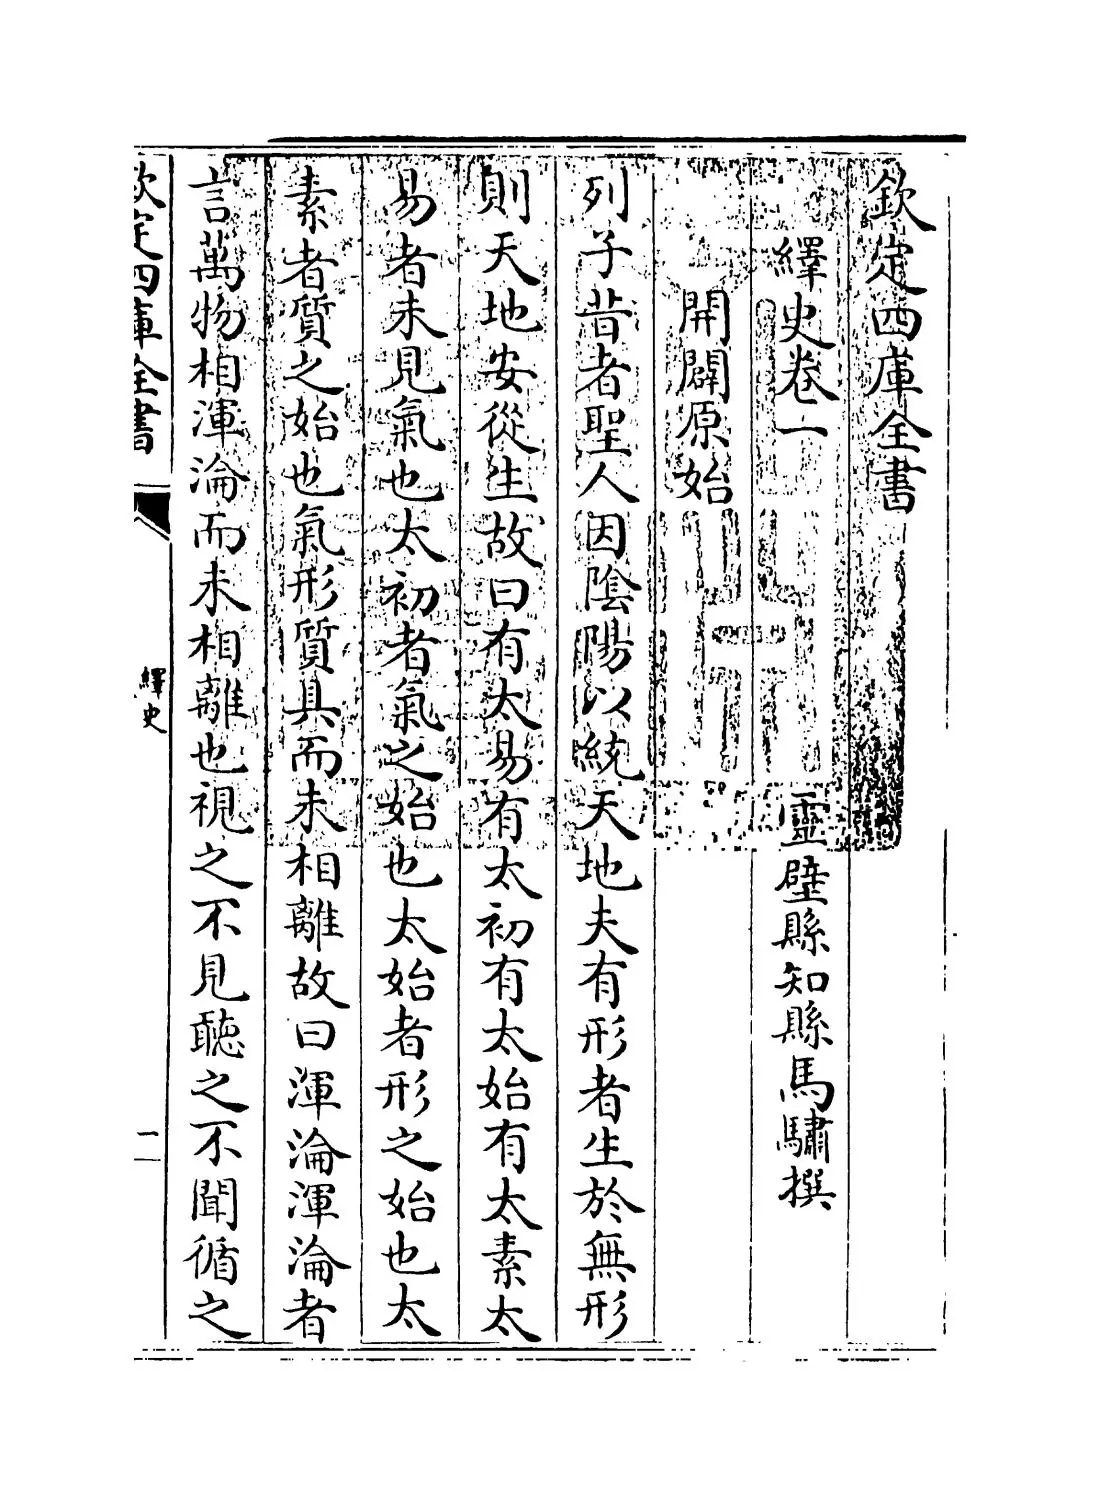 欽定四庫全書
繹史卷一
靈壁縣知縣馬驌撰
開闢原始
列子昔者聖人因陰陽以統天地夫有形者生於無形
則天地安從生故曰有太易有太初有太始有太素太
易者未見氣也太初者氣之始也太始者形之始也太
素者質之始也氣形質具而未相離故曰渾淪渾淪者
言萬物相渾淪而未相離也視之不見聽之不聞循之
欽定四庫全書
繹史
一